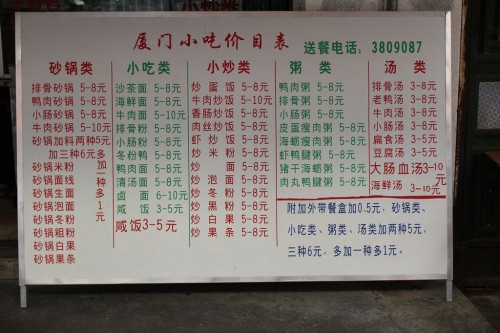 厦门小吃价目表
送餐电话：3809087
砂锅类
排骨砂锅 5-8元
鸭肉砂锅 5-8元
小肠砂锅 5-8元
牛肉砂锅 5-10元
砂锅加料两种5元
加三种6元
多加一种多1元
砂锅米粉
砂锅面线
砂锅生面
砂锅泡面
砂锅冬粉
砂锅粗粉
砂锅白果
砂锅果条
小吃类
沙茶面 5-8元
海鲜面 5-8元
牛肉面 5-10元
排骨粉 5-8元
小肠粉 5-8元
冬粉鸭 5-8元
鸭肉面 5-8元
清汤面 5-8元
卤面 6-10元
咸饭 3-5元
咸饭3-5元
小炒类
炒蛋饭 5-8元
牛肉炒饭 5-10元
香肠炒饭 5-8元
肉丝炒饭 5-8元
虾炒饭 5-8元
炒米粉 5-8元
炒面 5-8元
炒泡面 5-8元
炒冬粉 5-8元
炒黑粉 5-8元
炒白果 5-8元
炒果条 5-8元
粥类
鸭肉粥 5-8元
排骨粥 5-8元
小肠粥 5-8元
皮蛋瘦肉粥 5-8元
海蛎瘦肉粥 5-8元
虾鸭腱粥 5-8元
猪干海蛎粥 5-8元
肉丸鸭腱粥 5-8元
汤类
排骨汤 3-8元
老鸭汤 3-8元
牛肉汤 3-8元
小肠汤 3-8元
扁食汤 3-5元
豆腐汤 3-5元
大肠血汤3-10元
海鲜汤 3-10元
附加外带餐盒加0.5元，砂锅类、
小吃类、粥类、汤类加两种5元，
三种6元，多加一种多1元。